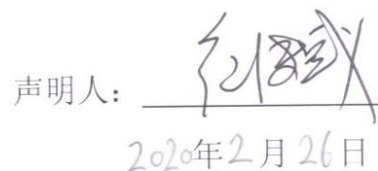 声明人：
2020年2月26日